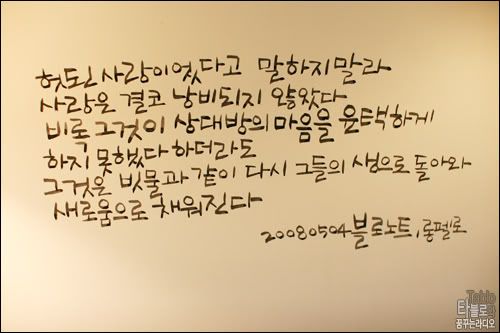 헛된 사랑이었다고 말하지말라
사랑은 결코 낭비되지 않았다
비록 그것이 상대방의 마음을 윤택하게
하지 못했다 하더라도
그것은 빗물과 같이 다시 그들의 샘으로 돌아와
새로움으로 채워진다
20080504 블로노트, 롱펠로
Tablo
타블로
꿈꾸는라디오